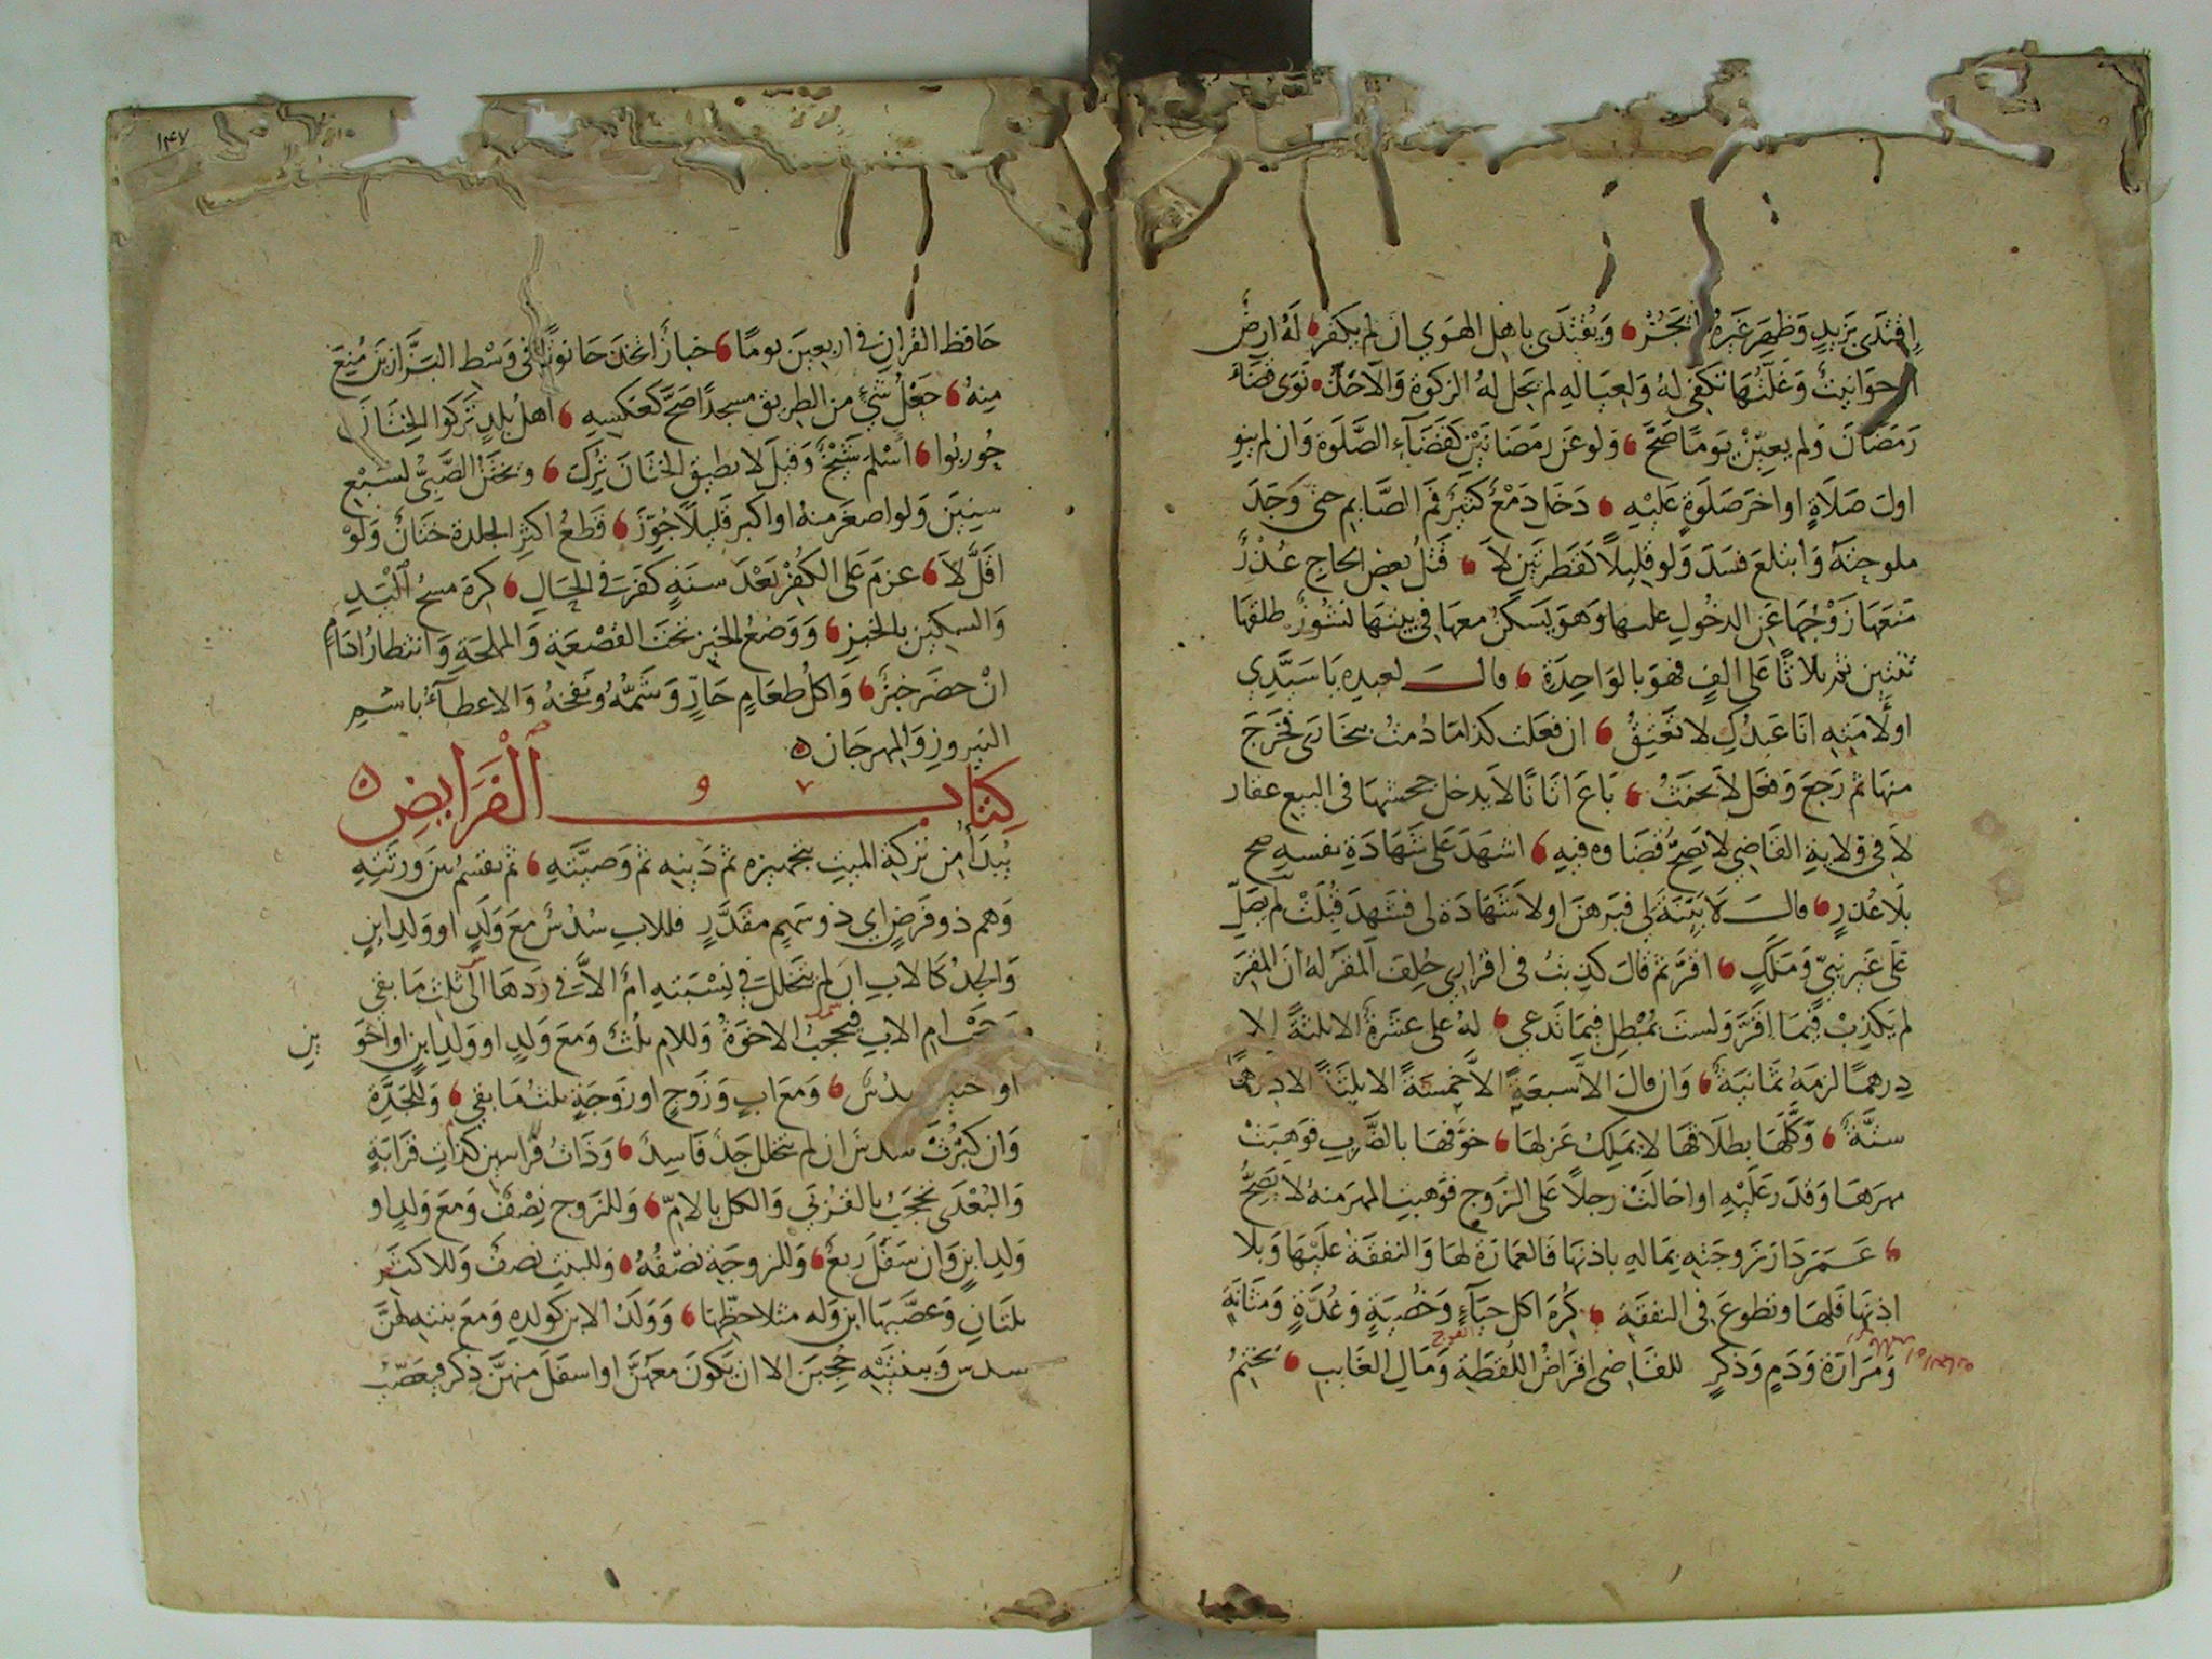 اِقْتَدَى بِزَيدٍ وَظهَرَ غَيرُهُ لم يَجُزْ وَيُقْتَدَى باهلِ الهَوي ان لم يكفر لَهُ ارضٌ
او حوَانِيتُ وَغَلَّتُهَا تكفِي لهُ وَلعِيَالهِ لم تحِلّ لهُ الزكوة وَالا حَلّت نَوَى قضَاءَ
رَمَضَانَ وَلم يعيّنْ يَومًا صَحَّ وَلو عَن رمَضانَيْنِ كَقَضَآءِ الصَّلَوة وَان لم ينوِ
اولَ صَلَاةٍ او اخرَ صَلَوةٍ عَليْهِ دَخَلَ دَمْعٌ كَثيرٌ فمَ الصَّايم حتى وَجَدَ
ملوحتَهُ وَابتلعَ فسَدَ وَلو قليلاً كَقطرَتَيْنِ لاَ قتلُ بعضِ الحاجِ عُذْرٌ
منَعَهَا زَوْجُهَا عَنِ الدخُولِ عليها وَهوَ يَسكنُ معهَا في بيتهَا نشوزٌ طلقهَا
ثنتين ثم بلاثًا على الفٍ فهوَ بالوَاحِدَةِ قال لعبدِه يَا سَيّدِي
اولامَتهِ انَا عَبدُكِ لا تَعتِقُ ان فعَلت كذا مَا دُمتُ ببخَارَى فخَرَجَ
منهَا ثم رَجَعَ وَفعَل لاَ يحنَثُ بَاعَ اتَانًا لاَ يدخل جحشهَا في البيع عقار
لاَ في وِلايةِ القاضِي لا يَصحُّ قضَاوه فيهِ اشهَدَ عَلَى شَهَادَةِ نفسه صح
بلاَ عُذرٍ قال لاَ بَيّنَةَ لي فبرهَنَ اولاَ شَهَادَة لي فشهدَ قُبِلَتْ لم يصَلّ
عَلى غَيرِ نبيٍّ وَمَلَكٍ اقرَّ ثم قال كذبتُ فى اقرَارِي حُلِفَ المقَرله انّ المقِرّ
لم يَكذِبْ فيمَا اقرَّ وَلستَ بمُبْطِلٍ فيمَا تَدعي لهُ على عشَرَةٌ الا ثلثةً الا
دِرهمًا لزمَهُ ثمَانيَةٌ وَان قال الاَّ سبعَةً الاَّ خمسَةً الا ثلثَةً الا درهمًا
ستّةٌ وَكَّلهَا بطلاَقهَا لا يَملِكُ عَزلهَا خوَّفهَا بالضَّربِ فوَهبَتْ
مهرَهَا وَقدَرَ عَليْهِ او احَالَتْ رجلاً عَلى الزَوجِ فوَهبتِ المهرَ منهُ لاَ يصحُّ
عَمّرَ دَارَ زَوجَتهِ بمَالهِ باذنهَا فَالعمَارَةُ لهَا وَالنفقةُ عليْهَا وَبلا
اذنهَا فَلهَا وتطوعَ في النفقةِ كُرِهَ اكل حيَآءٍ وَخُصيَةٍ وَغُدّةٍ وَمَثَانةٍ
وَمَرَارَةٍ وَدَمٍ وَذكرٍ للقَاضِى اقرَاضُ اللُقطَةِ وَمَال الغَايبِ يختِمُ
الفرج
۱۴۷
حَافظ القُرانِ في اربعينَ يومًا خبازٌ اتخذ حَانوتًا في وَسْط البَزّازين مُنعَ
منهُ جَعْلُ شيٍ من الطريقِ مسجدًا صَحَّ كعَكسِهِ اهل بلدٍ تَركوا الخِتَانَ
حُورِبُوا اسْلمَ شَيْخٌ وَقيلَ لا يطيق الختَانَ تُرِكَ وَيختَنُ الصَّبيُّ لسَبْعِ
سِنينَ وَلو اصغرَ منهُ او اكبر قليلاً جُوّزَ قطعُ اكثرِ الجلدة ختَانٌ وَلَوْ
اقَلَّ لاَ عزمَ عَلى الكفرْ بَعْدَ سنَةٍ كفرَ في الحَالِ كرِهَ مسحُ الْيَدِ
وَالسكينِ بالخبزِ وَوَضعُ الخبزِ تحتَ القَصْعَةِ وَالمملحَةِ وَانتظارُ ادَامٍ
انْ حضَرَ خبزٌ وَاكلُ طعَامٍ حَارٍّ وَشَمُّهُ ونَفخهُ وَالاعطآءُ باسْمِ
النيروزِ وَالمهرجَان
كتاب الْفَرَايضِ
يُبدَأ مِن تركةِ الميتِ بتجهيزه ثم دَينهِ ثم وَصيَّتهِ ثم يقسمُ بينَ وَرثتِهِ
وَهم ذو فَرضٍ اي ذو سَهمٍ مقدَّرٍ فللابِ سُدْسٌ معَ وَلَدٍ او وَلدِ ابنٍ
وَالجدُّ كَالابِ ان لم يتَخللْ في نِسْبَتهِ امٌ الاَّ في رَدّهَا الى ثلثِ مَا بقي
وحَجْب امِ الابِ فيحجبُ الاخوَةَ وَللامِ ثلثٌ وَمعَ وَلدٍ او وَلدِ ابنٍ او اخوَ
ين
او اختين سدُسٌ وَمعَ ابٍ وَزَوجٍ او زَوجَةٍ ثلثُ مَا بقي وَللجَدّةِ
وَان كثُرَتْ سدسٌ ان لم يتخلل جَدٌّ فَاسِدٌ وَذَاتُ قَراببتين كذاتِ قرَابَةٍ
وَالبُعْدَى تحجَبُ بالقُرْبَى وَالكل بالامّ وَللزوجِ نِصْفٌ وَمعَ وَلدٍ او
وَلدِ ابنٍ وَان سَفَلَ ربعٌ وَللزوجَةِ نصْفُهُ وَللبنتِ نصفٌ وَللاكثَرِ
ثلثَانِ وَعصَّبهَا ابنٌ وَله مثلا حظّهَا وَوَلَدُ الابن كولدِهِ وَمعَ بنتهِ لهُنَّ
سدس وَببنتَيْهِ حُجِبنَ الا ان يَّكونَ معَهُنَّ او اسفَلَ منهُنَّ ذكر فيعَصّبُ